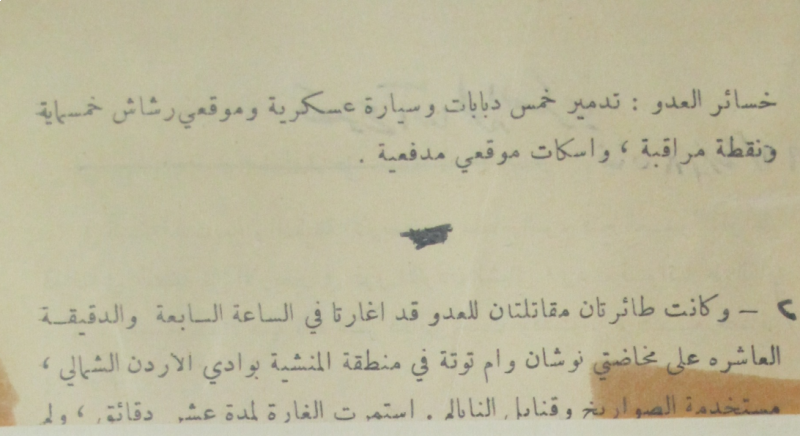 خسائر العدو : تدمير خمس دبابات وسيارة عسكرية وموقعي رشاش خمسماية
ونقطة مراقبة ، واسكات موقعي مدفعية .
٢ — وكانت طائرتان مقاتلتان للعدو قد اغارتا في الساعة السابعة والدقيقة
العاشره على مخاضتي نوشان وام توتة في منطقة المنشية بوادي الاردن الشمالي ،
مستخدمة الصواريخ وقنابل النابالم . استمرت الغارة لمدة عشر دقائق ، ولم